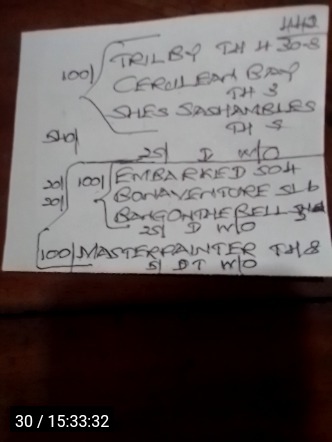 442
TRILBY TH 4 30-8
100/ CERULEAN BAY
TH 3
SHES SASHAMBLES
TH 5
SHO/
25/ D W/O
20/ 100/ EMBARKED SO4
20/ BONAVENTURE SL 6
BANGONTHEBELL
25/ D W/O
100/ MASTERPAINTER TH 8
5/ DT W/O
30 / 15:33:32